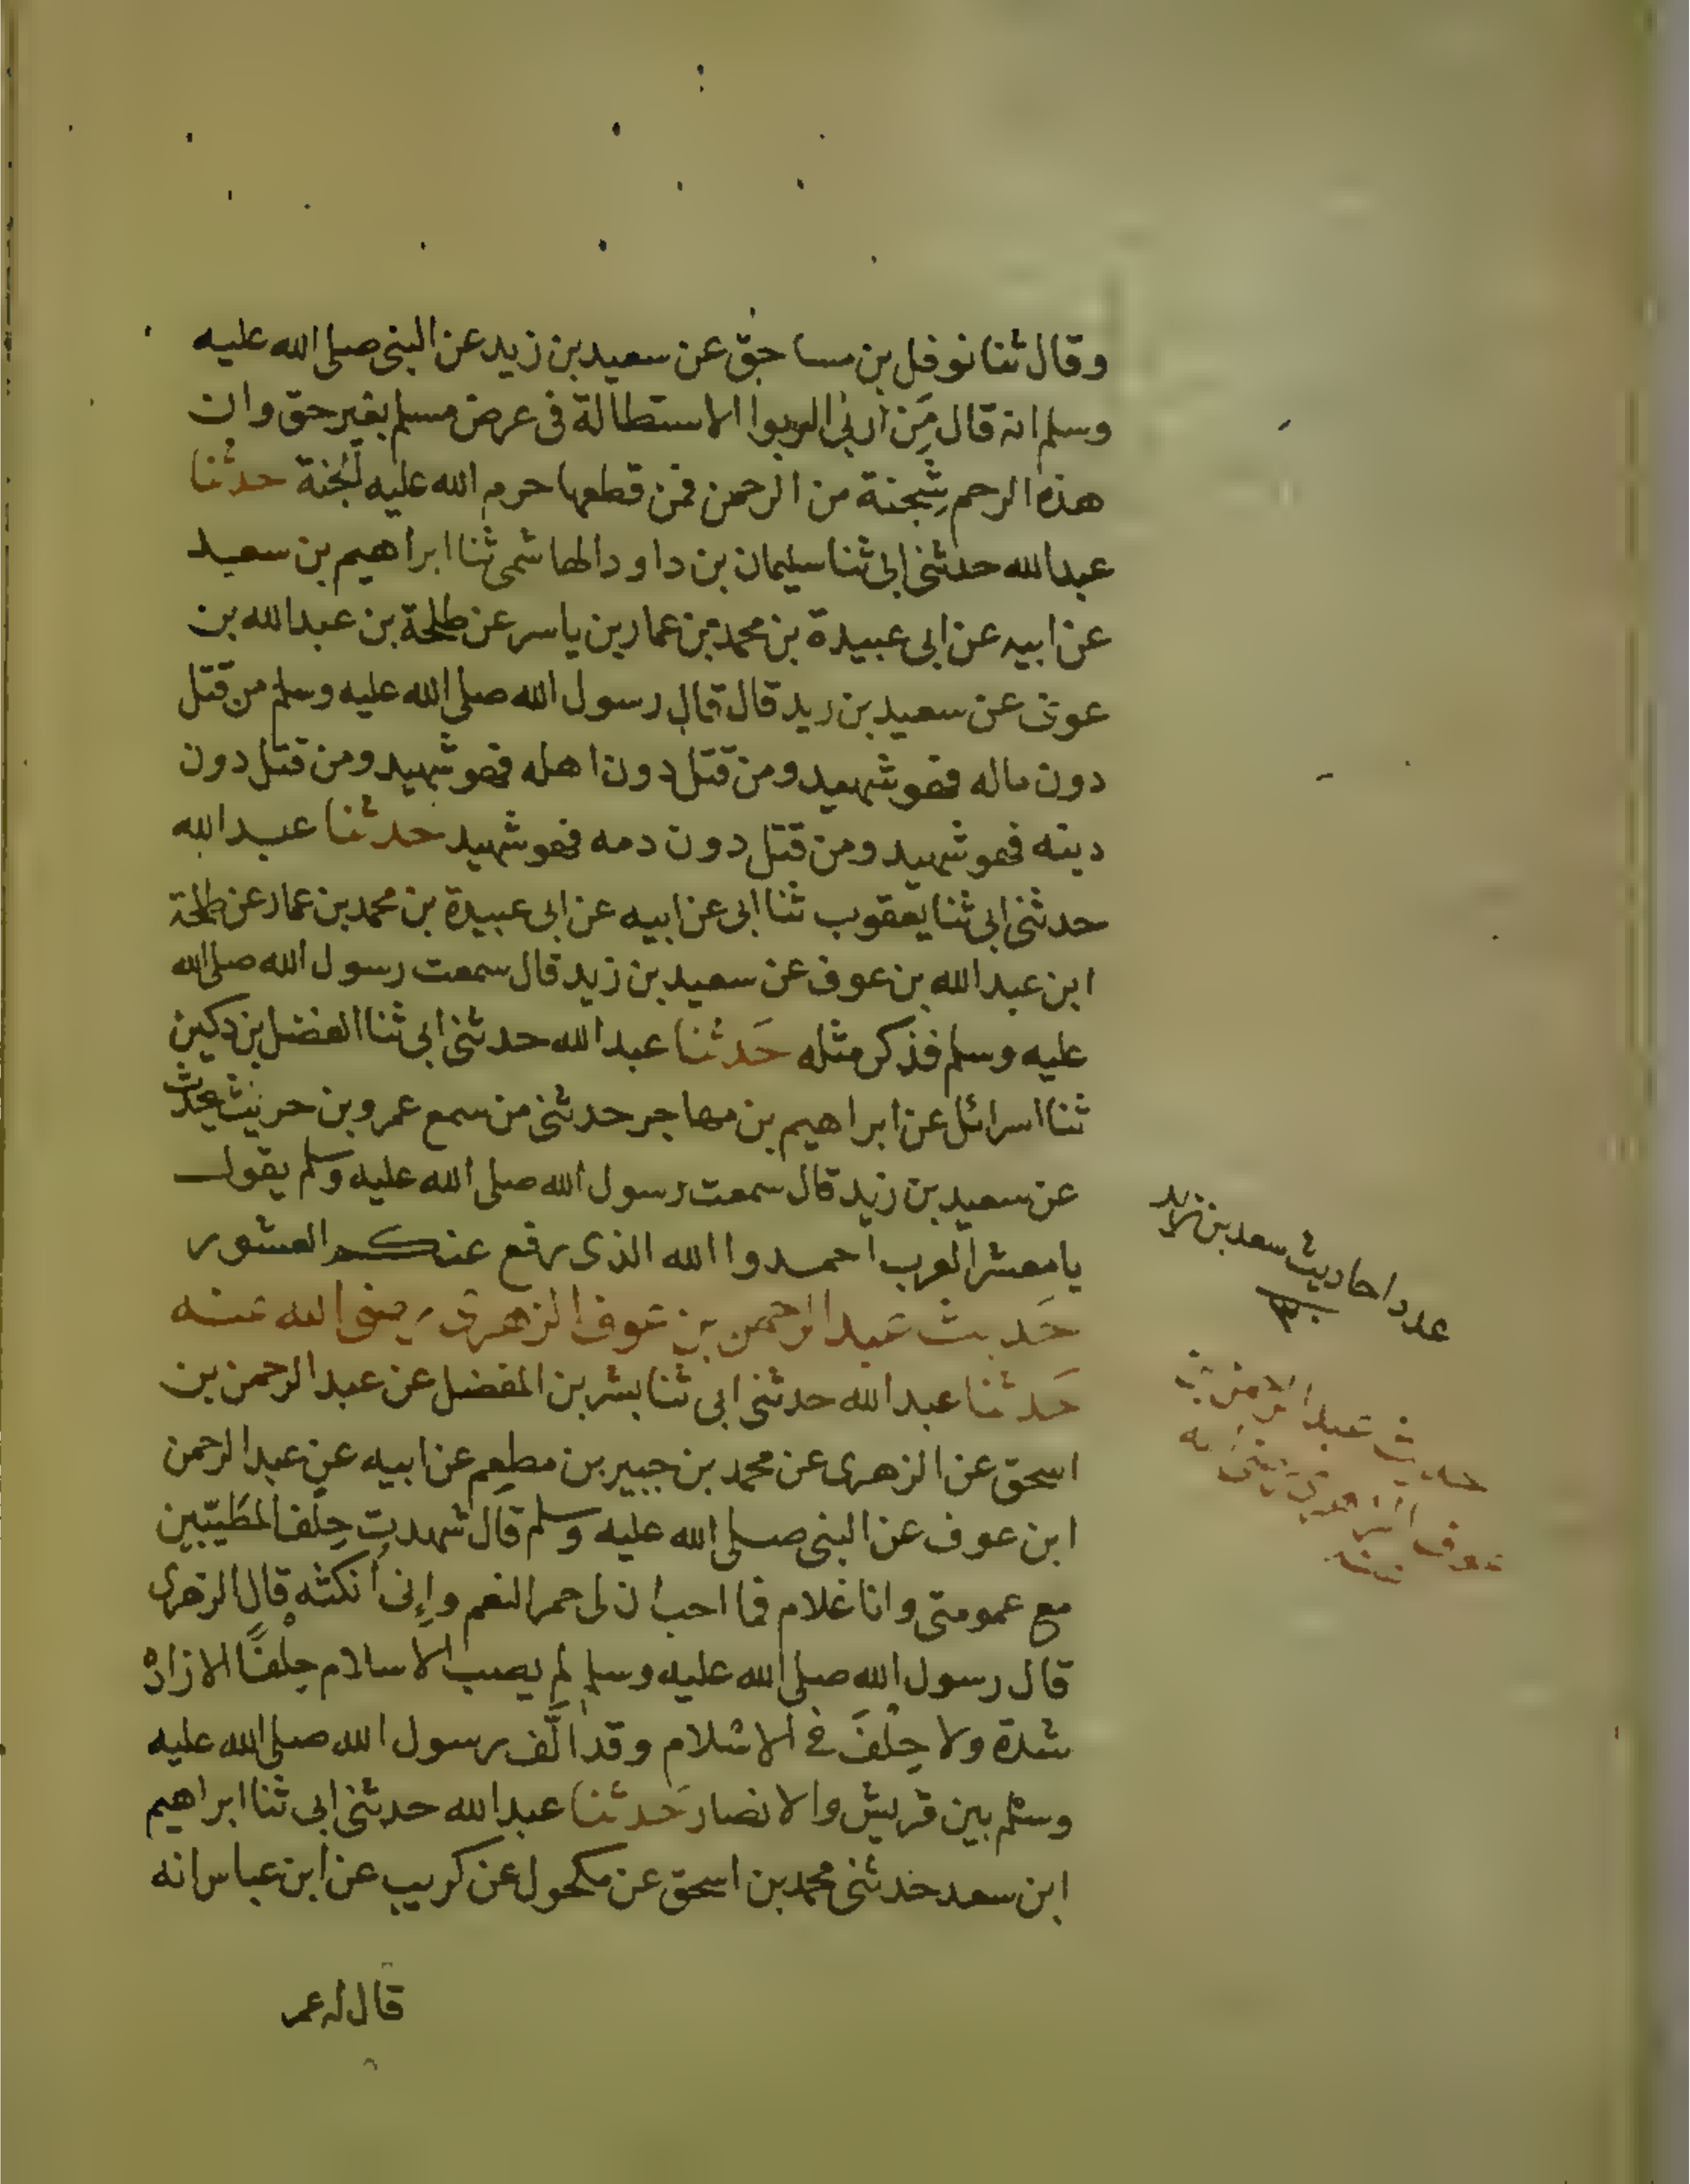 وقال ثنا نوفل بن مساحق عن سعيد بن زيد عن النبي صلى الله عليه
وسلم انه قال مِن اربى الربوا الاستطالة فى عرض مسلم بغير حق وان
هذه الرحم شِجنة من الرحمن فمن قطعها حرم الله عليه لجنة حدثنا
عبد الله حدثنى ابى ثنا سليمان بن داود الهاشمى ثنا ابراهيم بن سعيد
عن ابيه عن ابى عبيدة بن محمد بن عمار بن ياسر عن طلحة بن عبد الله بن
عوف عن سعيد بن ريد قال قال رسول الله صلى الله عليه وسلم من قتل
دون ماله فهو شهيد ومن قتل دون اهله فهو شهيد ومن قتل دون
دينه فهو شهيد ومن قتل دون دمه فهو شهيد حدثنا عبد الله
حدثنى ابى ثنا يعقوب ثنا ابى عن ابيه عن ابى عبيدة بن محمد بن عمار عن طلحة
ابن عبد الله بن عوف عن سعيد بن زيد قال سمعت رسول الله صلى الله
عليه وسلم فذكر مثله حَدثنا عبد الله حدثنى ابى ثنا الفضل بن دكين
ثنا اسرائل عن ابراهيم بن مهاجر حدثنى من سمع عمرو بن حريث يحدث
عن سعيد بن زيد قال سمعت رسول الله صلى الله عليه وسلم يقول
يا معشر العرب احمدوا الله الذى رفع عنكم العشور
حَديث عَبد الرحمن بن عَوف الزهرى رضى الله عنه
حَدثنا عبد الله حدثنى ابى ثنا بشر بن المفضل عن عبد الرحمن بن
اسحق عن الزهرى عن محمد بن جبير بن مطعم عن ابيه عن عبد الرحمن
ابن عوف عن النبى صلى الله عليه وسلم قال شهدت حِلف المطَيّبين
مع عمومتى وانا غلام فما احب ان لى حمر النعم وإنى أنكثه قال الزهرى
قال رسول الله صلى الله عليه وسلم لم يصب الاسلام حِلْفًا الا زادْه
شدة ولا حِلْفَ فى الاسلام وقد الَّف رسول الله صلى الله عليه
وسلم بين قريش والانصار حَدثنا عبد الله حدثنى ابى ثنا ابراهيم
ابن سعد حدثنى محمد بن اسحق عن مكحول عن كريب عن ابن عباس انه
قال له عمر
عدد احاديث سعد بن زيد
حديث عبد الرحمن بن
عوف الزهرى رضى الله
عنه